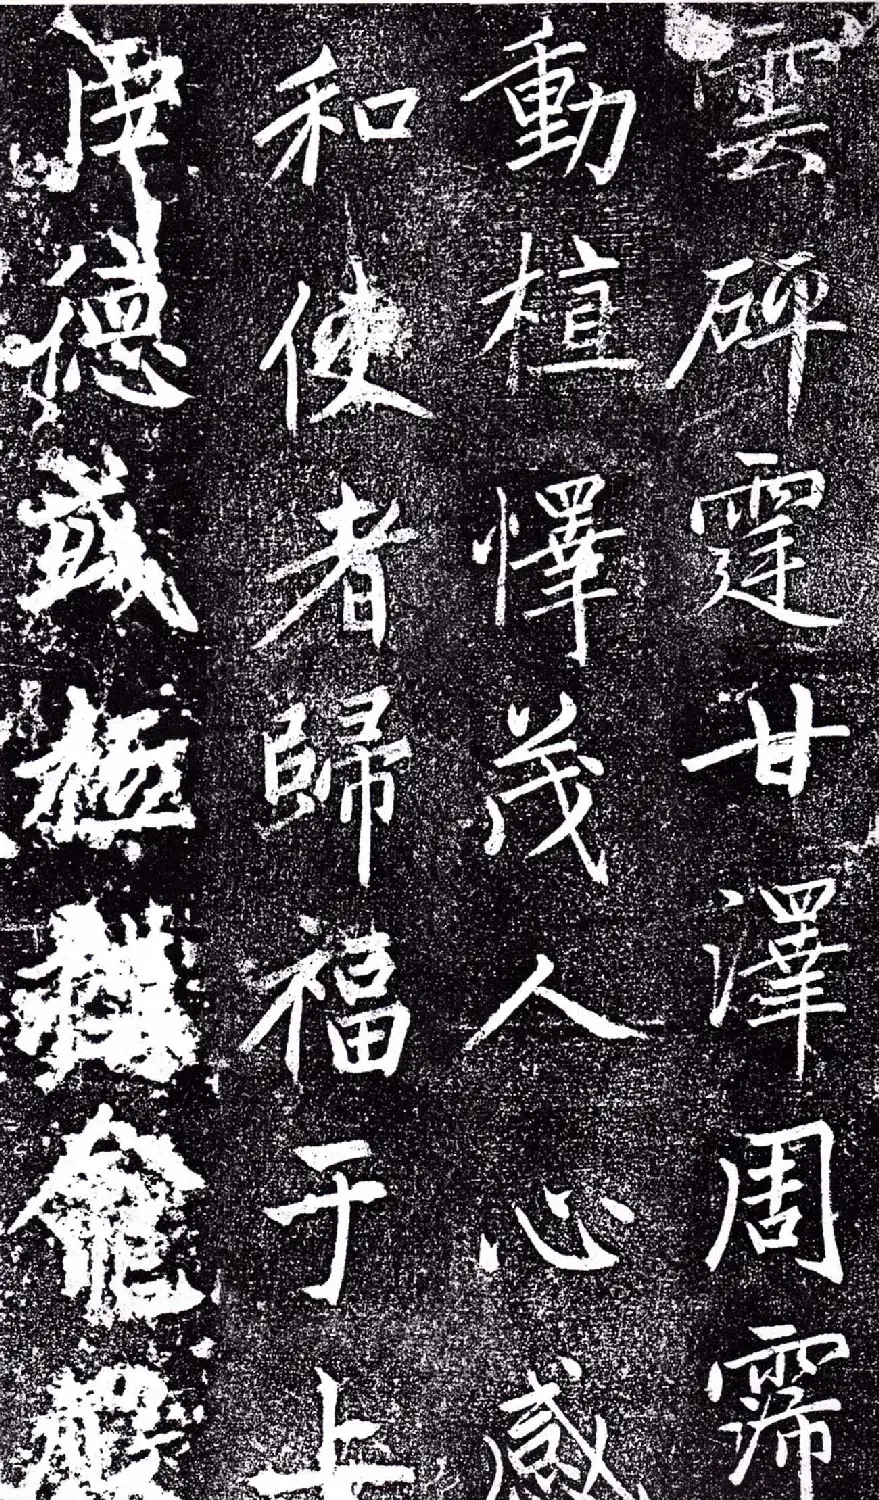 雲砰霆甘澤周霈
動植懌茂人心感
和使者歸福于上
德極